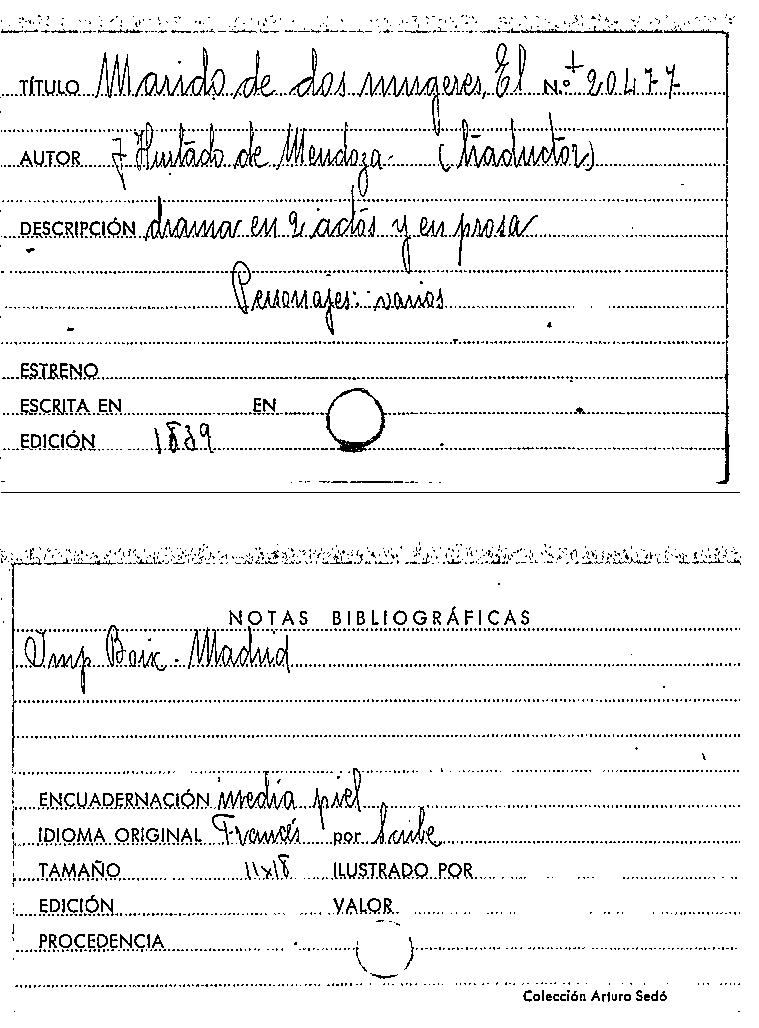 TÍTULO Marido de dos mugeres, El N.º + 20477
AUTOR J Hurtado de Mendoza - (traductor)
DESCRIPCIÓN drama en 2 actos y en prosa
Personajes: varios
ESTRENO
ESCRITA EN EN
EDICIÓN 1839
NOTAS BIBLIOGRÁFICAS
Imp Boix. Madrid
ENCUADERNACIÓN media piel
IDIOMA ORIGINAL Francés por Scribe
TAMAÑO 11x18 ILUSTRADO POR
EDICIÓN VALOR
PROCEDENCIA
Colección Arturo Sedó